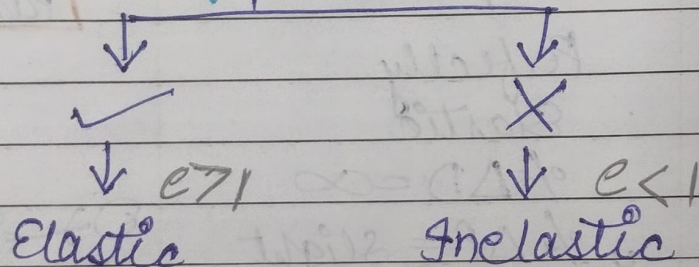 ✓ X
e>1 e<1
Elastic Inelastic